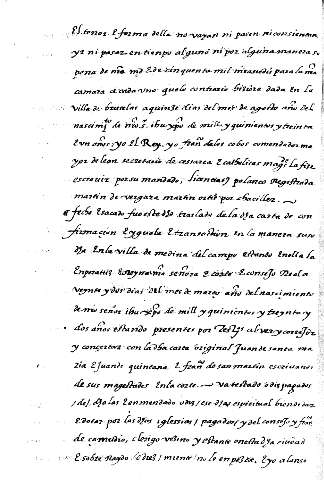 El tenor E forma della no vayan ni pasen ni consientan
yr ni pasar en tiempo alguno ni por alguna manera so
pena de mrd E de cinquenta mill maravedis para la
camara a cada uno quelo contrario hiziere dada en la
villa de bruselas a quinze dias del mes de agosto año del
nascimyº de nrº sº ihu xpo de mill y quinientos y treinta
E un años yo El Rey. yo franº delos cobos comendador ma
yor de leon secretario de cesarea E catholicas magˢ la fize
escreuir por su mandado, licenciatº polanco Registrada
martin de vergara martin ortiz por chanciller. —
fecho E sacado fue este dho traslado de la dha carta de con
firmacion E en la manera suso
dha En la villa de medina del campo estando en ella la
Enperatriz E Reyna nra señora E corte E consejo Real a
veynte y dos dias del mes de março año del nascimiento
de nrº señor ihu xpo de mill y quinientos y treynta y
dos años estando presentes por testigˢ al ver y corregir
y concertar con la dha carta original Juan de santa ma
ria E Juan de quintana E franº de san martin escriuanos
de sus magestades En la corte. — va testado o diz pagados
/ de / E dellas Enmendado o diz / espiritual bien
E dotas por las dhas iglesias / pagados / y del consejo E franº
de camedio, clerigo vezino y estante en esta dha ciudad
E sobre Raydo / E diez / mente no le en pezca. E yo alonso